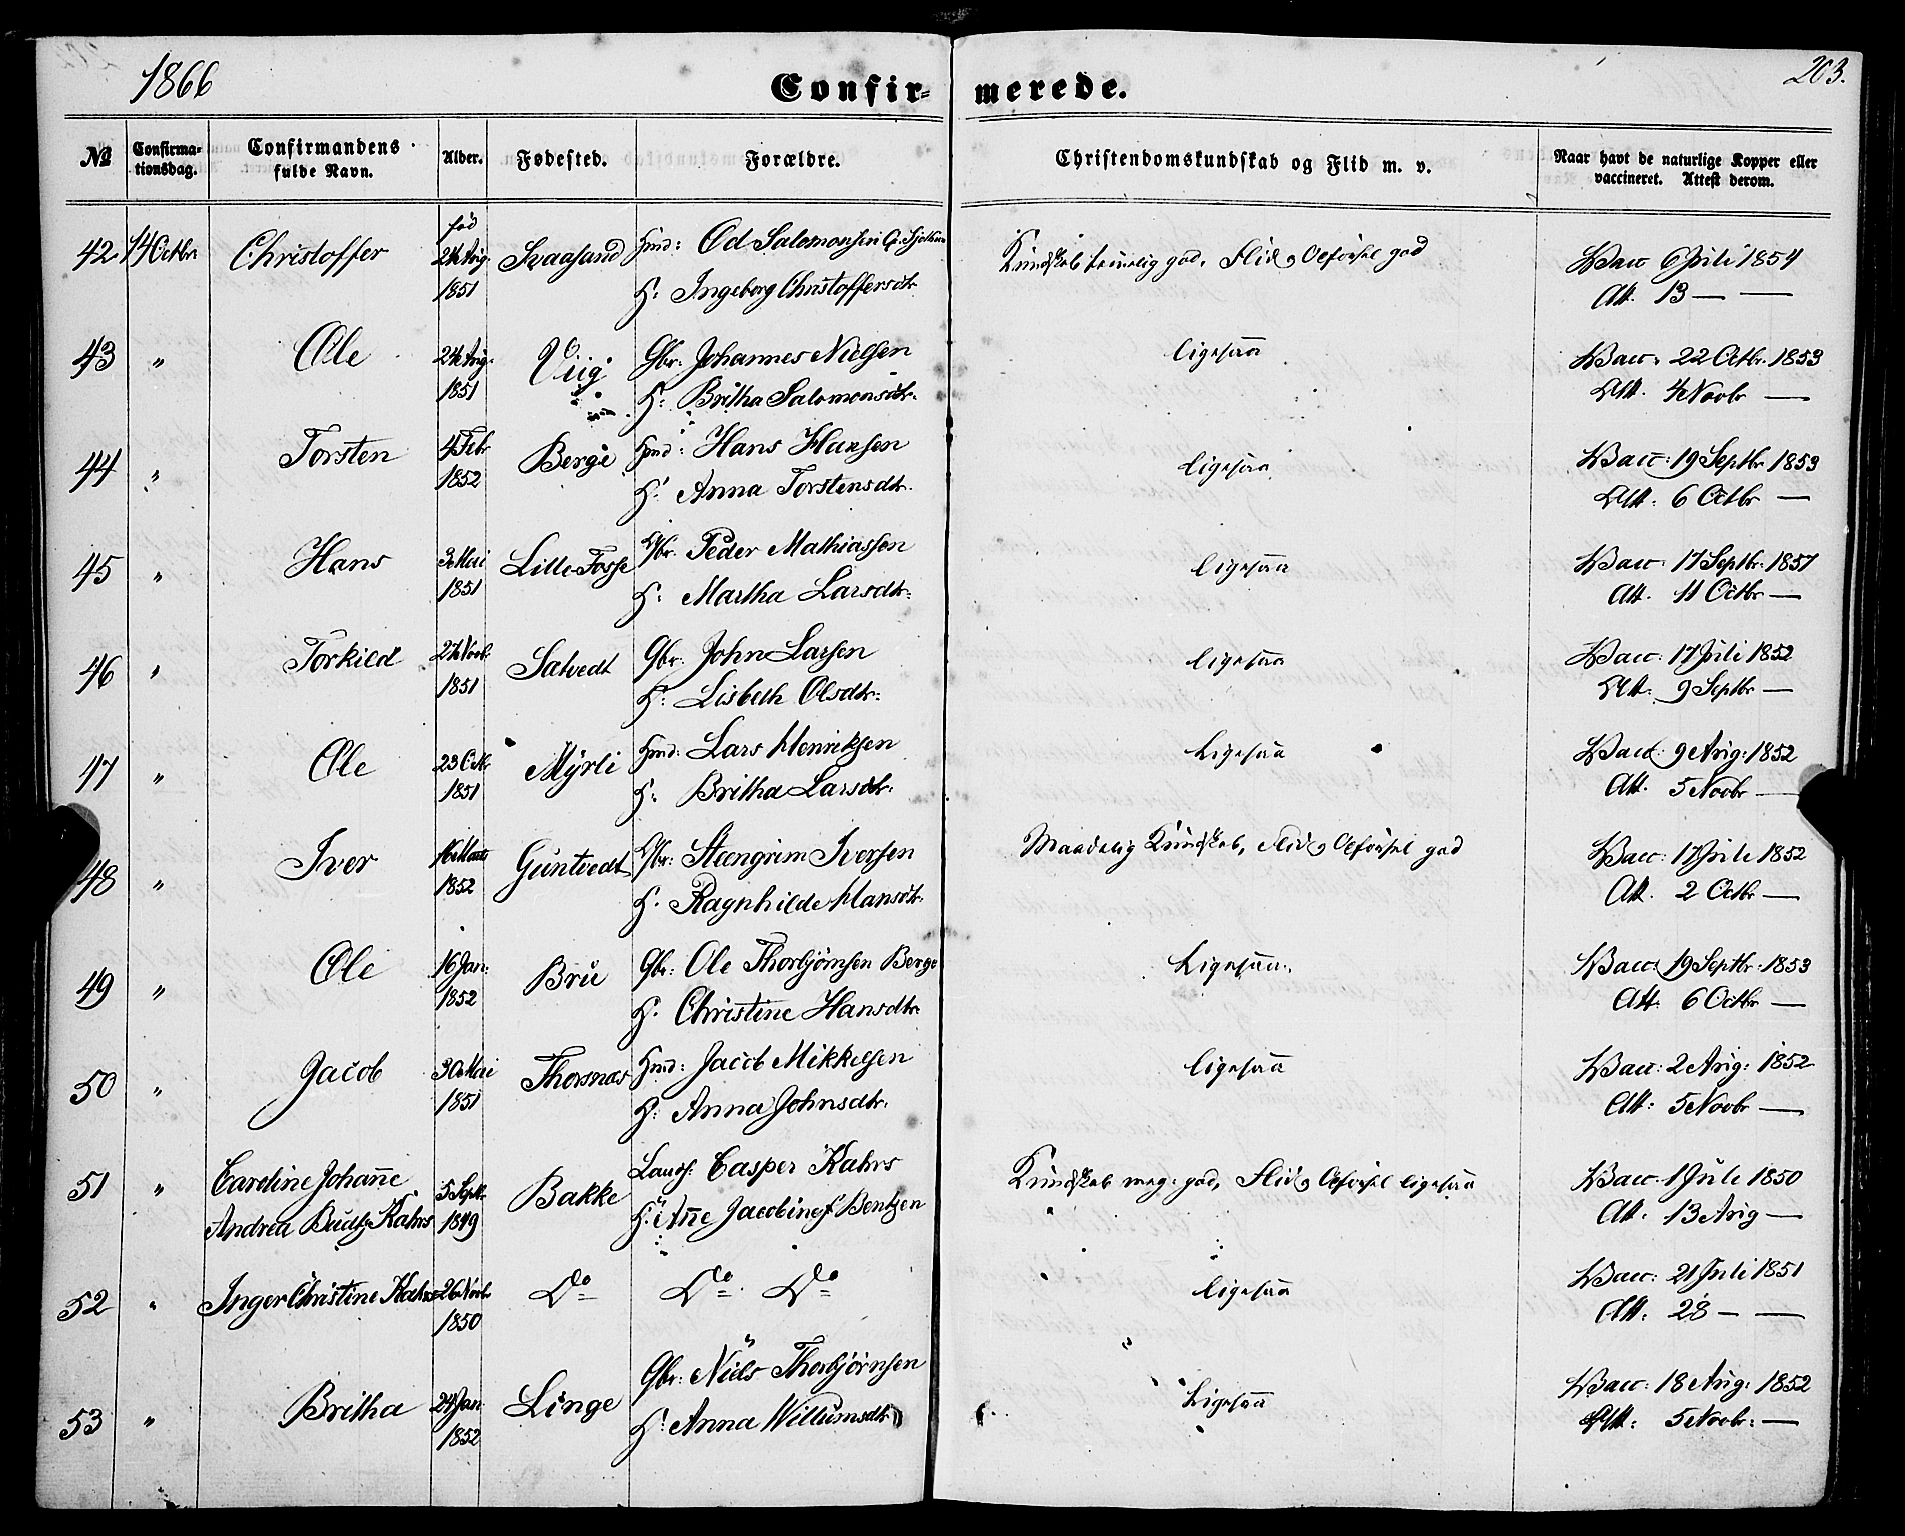 1866
Confir-
merede.
203.
№
Confirma-
tionsdag.
Confirmandens
fulde Navn.
Alder.
Fødested.
Forældre.
Christendomskundskab og Flid m. v.
Naar havt de naturlige Kopper eller
vaccineret. Attest derom.
42 14 Octbr Christoffer
fød
24 Aug.
1851
Svaasand
Hmd: Od Salomonsen
H: Ingeborg Christoffersdtr
Kundskab temmelig god. Flid og Opførsel god
Vacc 6 Juli 1854
Att. 13 — —
43 " Ole
24 Aug.
1851
Viig
Gbr: Johannes Nielsen
H: Britha Salomonsdtr.
ligesaa
Vacc. 22 Octbr. 1853
Att. 4 Novbr —
44 " Torsten
4 Feb
1852
Berge
Hmd: Hans Hansen
H: Anna Torstensdtr.
ligesaa
Vacc: 19 Septbr 1853
Att: 6 Octbr —
45 " Hans
3 Mai
1851
Lille Fosse
Gbr. Peder Mathiassen
H: Martha Larsdtr:
ligesaa
Vacc: 17 Septbr: 1851
Att. 11 Octbr —
46 " Torkild
27 Novb.
1851
Salvedt
Gbr. John Larsen
H: Lisbeth Olsdtr:
ligesaa
Vacc: 17 Juli 1852
Att. 9 Septbr —
47 " Ole
23 Octbr
1851
Myrli
Hmd: Lars Henriksen
H: Britha Larsdtr:
Ligesaa
Vacc: 9 Aug: 1852
Att. 5 Novbr —
48 " Iver
16 Marts
1852
Guntvedt
Gbr: Steengrim Iversen
H. Ragnhilde Hansdtr.
Maadelig Kundskab, Flid og Opførsel god
Vacc: 17 Juli 1852
Att. 2 Octbr —
49 " Ole
16 Jan:
1852
Bru
Gbr: Ole Thorbjørnsen Berge
H. Christine Hansdtr.
Ligesaa.
Vacc: 19 Septbr: 1853
Att: 6 Octbr —
50 " Jacob
30 Mai
1851
Thorsnæs
Hmd: Jacob Mikkelsen
H: Anna Johnsdtr.
ligesaa
Vacc: 2 Aug: 1852
Att: 5 Novbr —
51 " Caroline Johan̄e
Andrea Kahrs
5 Septb.
1849
Bakke
Casper Kahrs
H: An̄e Jacobine f. Bentzen
Kundskab meg. god, Flid og Opførsel ligesaa
Vacc. 1 Juli 1850
Att. 13 Aug —
52 " Inger Christine Kahrs
26 Novbr
1850
Do
Do Do
ligesaa
Vacc: 21 Juli 1851
Att: 28 — —
53 " Britha
24 Jan
1852
Linge
Gbr: Niels Thorbjørnsen
H: Anna Willumsdtr
Ligesaa
Vacc: 18 Aug: 1852
Att: 5 Novbr: —